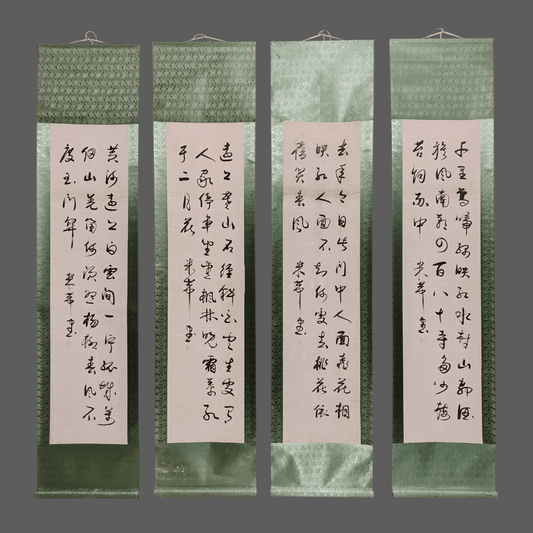 千里鶯啼綠映紅水村山郭酒
旗風南朝四百八十寺多少樓
台烟雨中 米芾書
去年今日此門中人面桃花相
映紅人面不知何處去桃花依
舊笑春風 米芾書
遠上寒山石徑斜白雲生處有
人家停車坐愛楓林晚霜葉紅
于二月花 米芾書
黄河遠上白雲間一片孤城萬
仞山羌笛何須怨楊柳春風不
度玉門關 米芾書